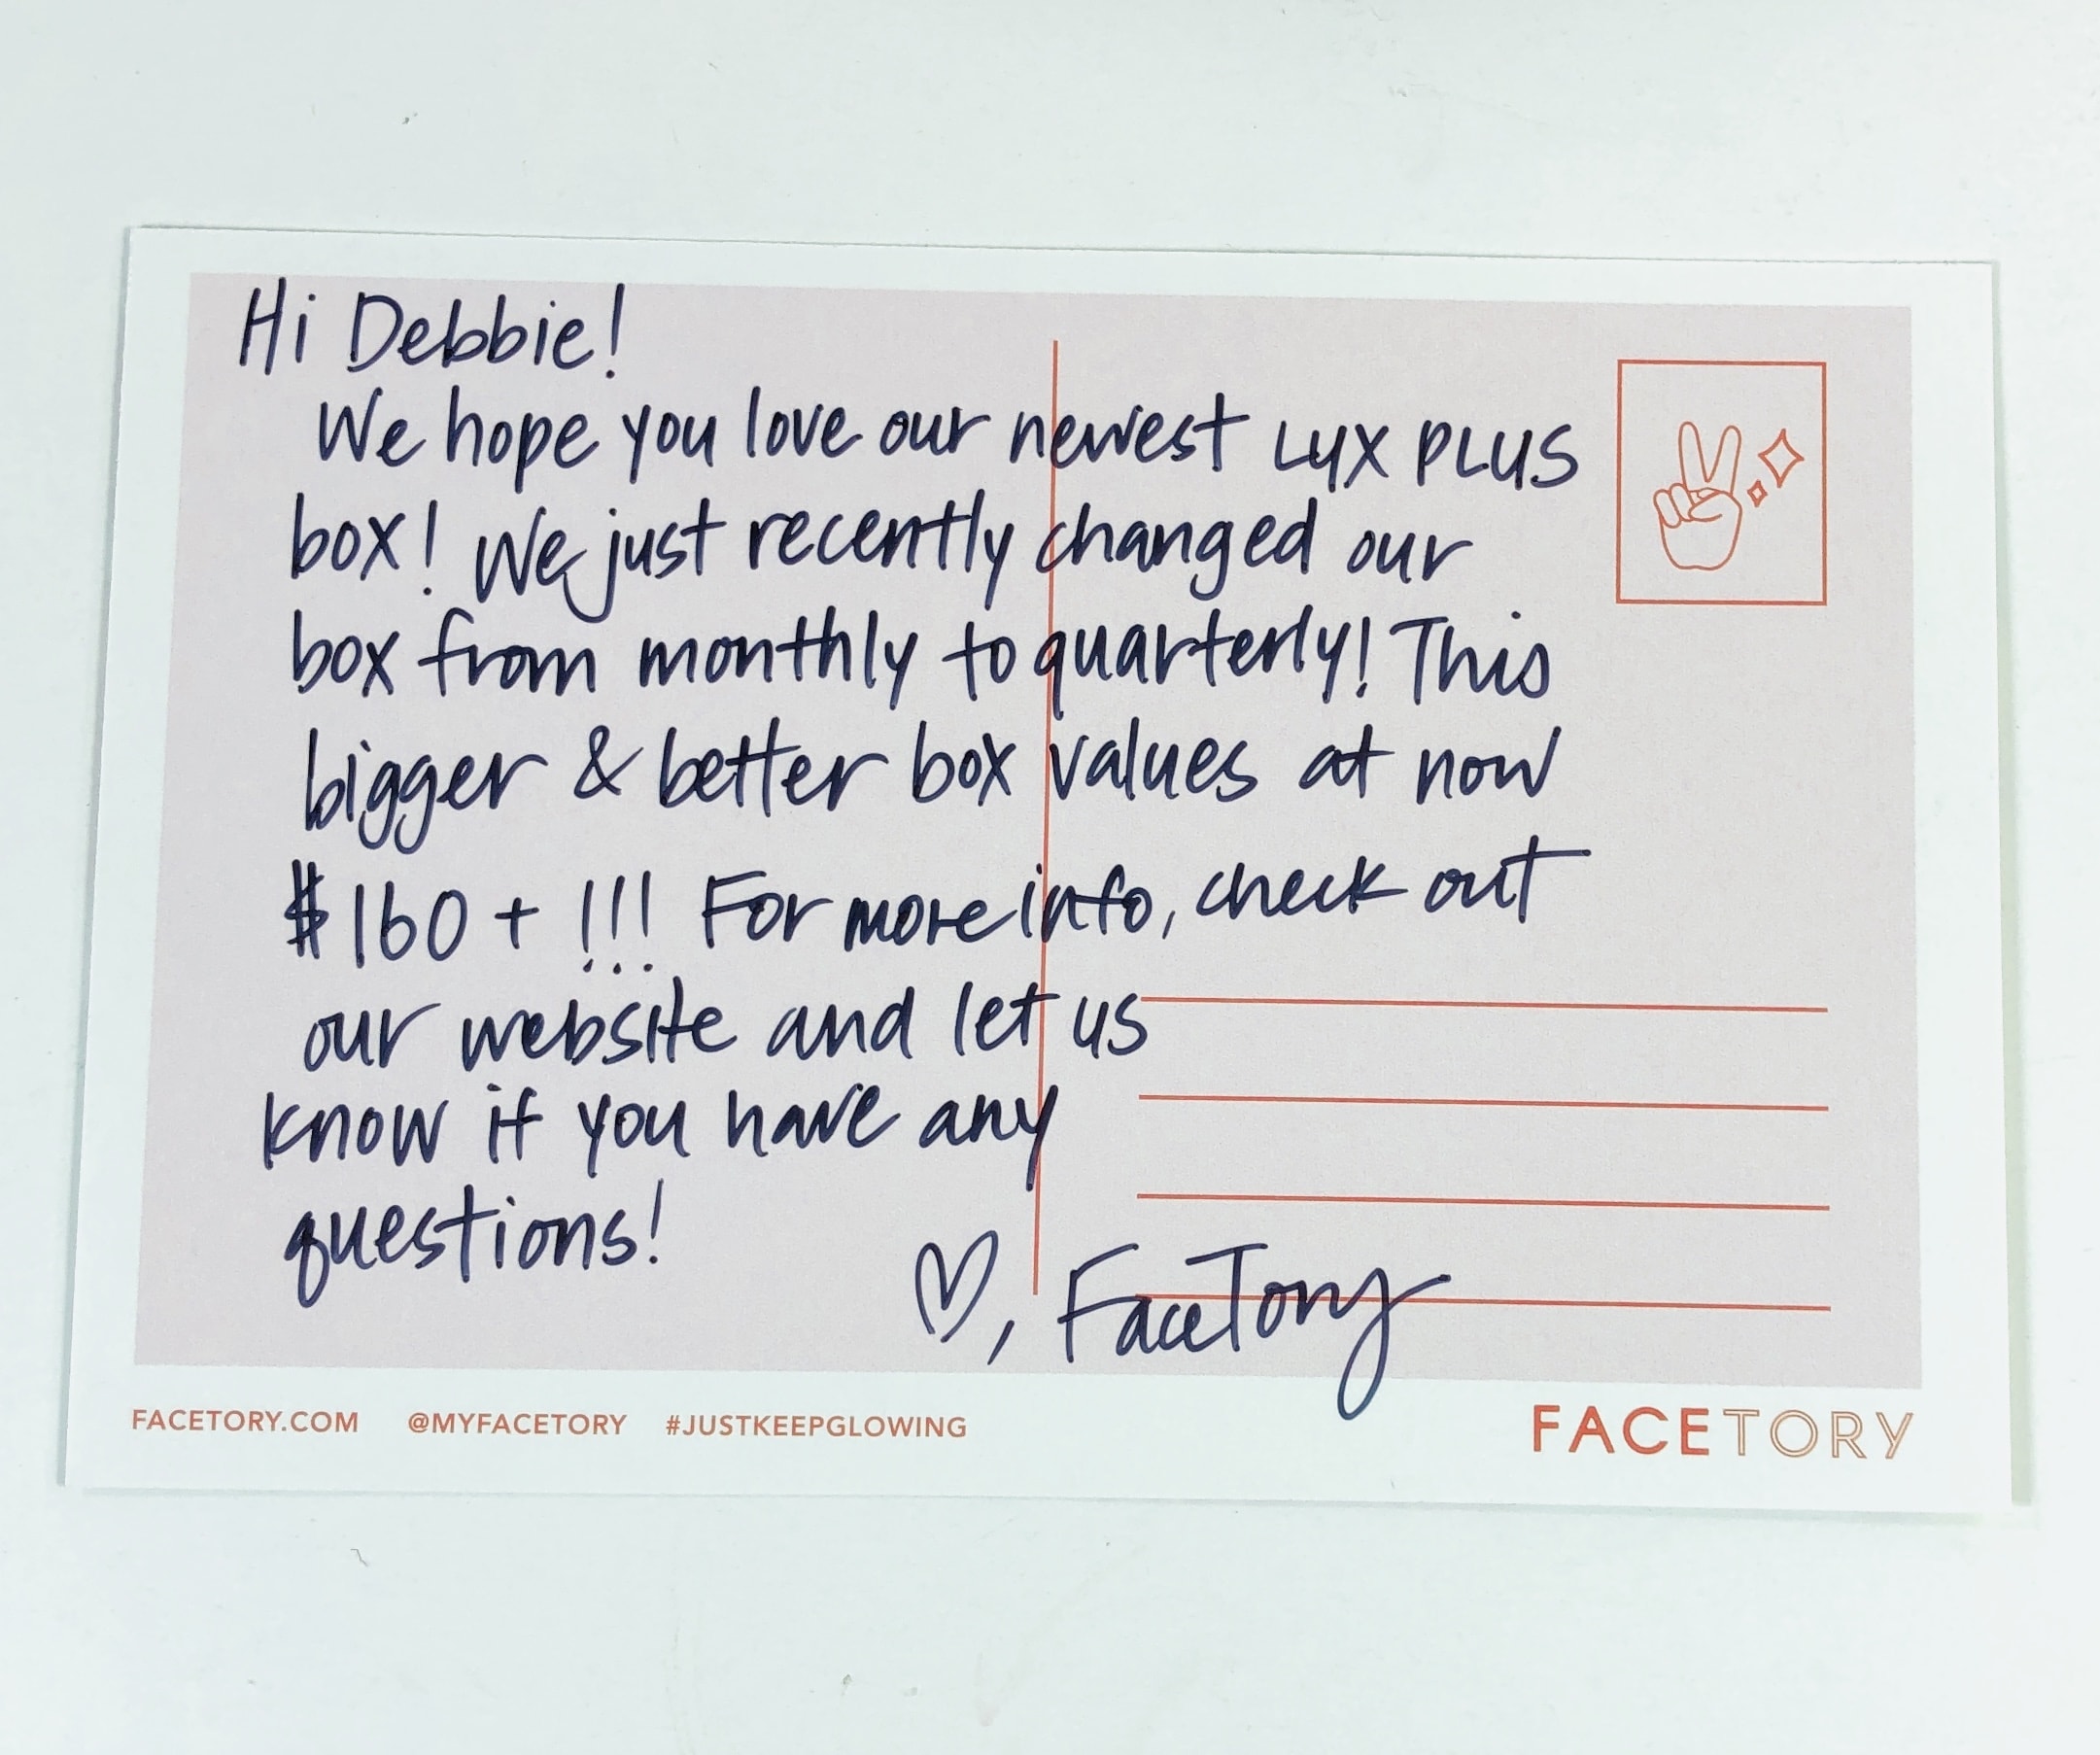 Hi Debbie!
We hope you love our newest LUX PLUS
box! We just recently changed our
box from monthly to quarterly! This
bigger & better box values at now
$160+!!! For more info, check out
our website and let us
know if you have any
questions!
♡, FaceTory
FACETORY.COM @MYFACETORY #JUSTKEEPGLOWING
FACETORY